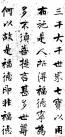 三千大千世界七寶以用
布施是人所得福德寧為
多不須菩提言甚多世尊
何以故是福德即非福德